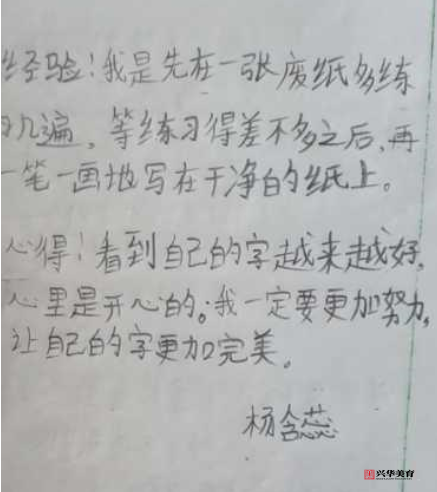 经验：我是先在一张废纸多练
习几遍，等练习得差不多之后，再
一笔一画地写在干净白的纸上。
心得：看到自己的字越来越好，
心里是开心的。我一定要更加努力，
让自己的字更加完美。
杨含蕊
兴华美育